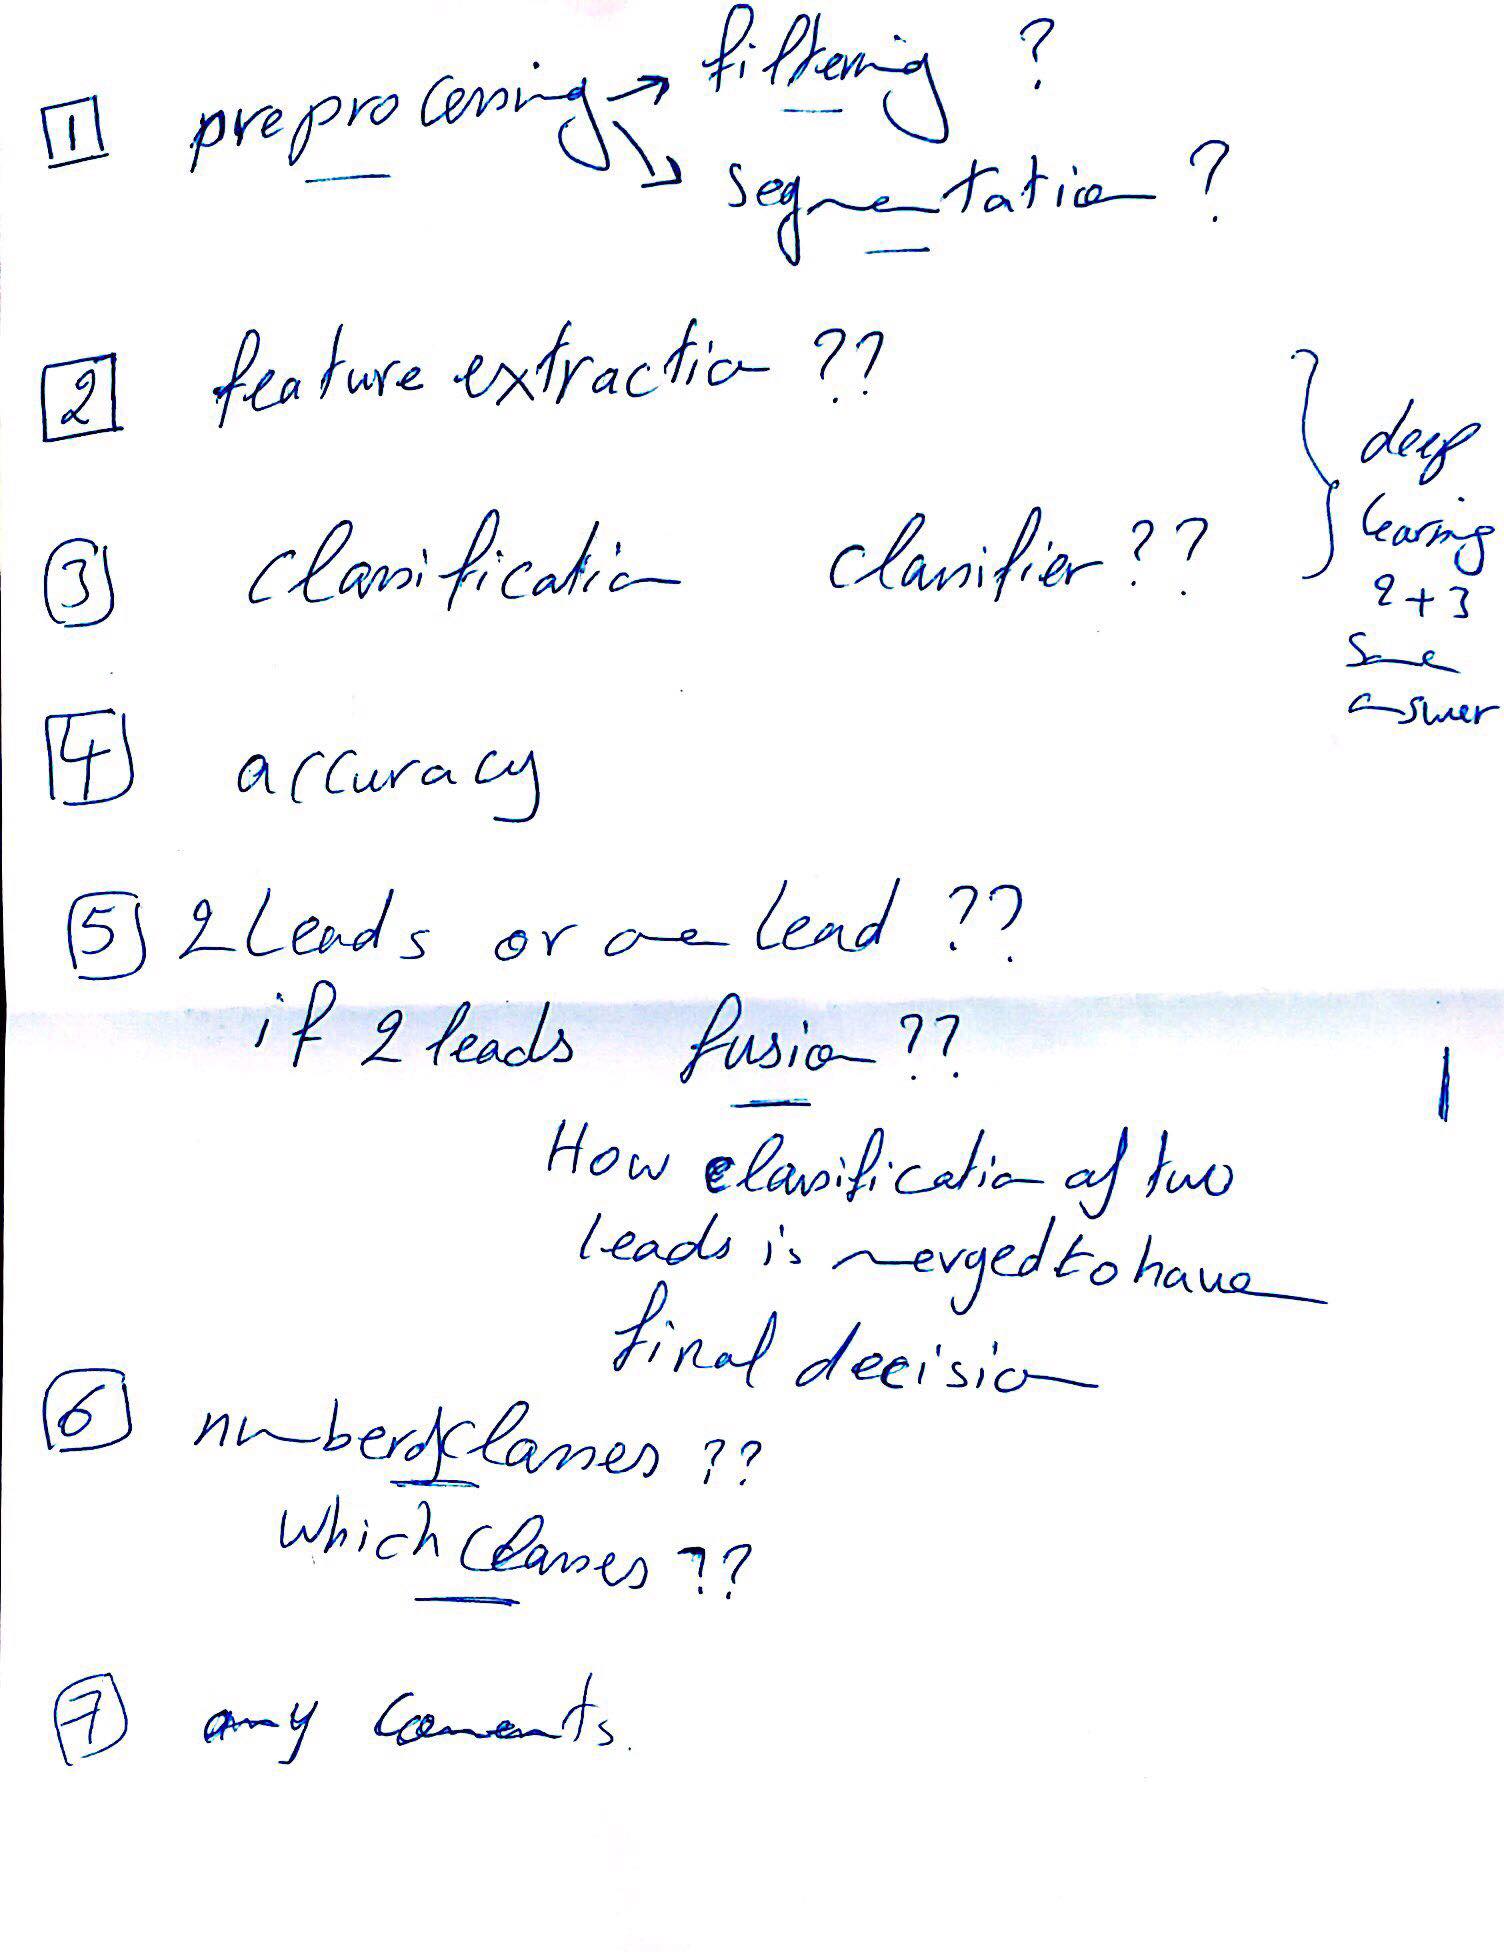 1 preprocessing → filtering ?
→ segmentation ?
2 feature extraction ??
3 classification classifier ??
deep
learning
2 + 3
same
answer
4 accuracy
5 2 Leads or one lead ??
if 2 leads fusion ??
How classification of two
leads is merged to have
final decision
6 number of classes ??
which classes ??
7 any coments.